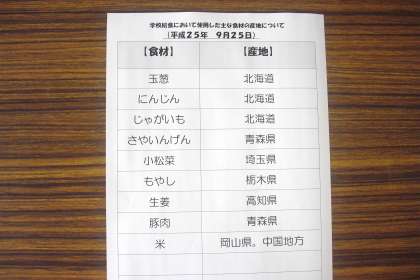 学校給食において使用した主な食材の産地について
（平成２５年　９月２５日）
【食材】　【産地】
玉葱　北海道
にんじん　北海道
じゃがいも　北海道
さやいんげん　青森県
小松菜　埼玉県
もやし　栃木県
生姜　高知県
豚肉　青森県
米　岡山県。中国地方